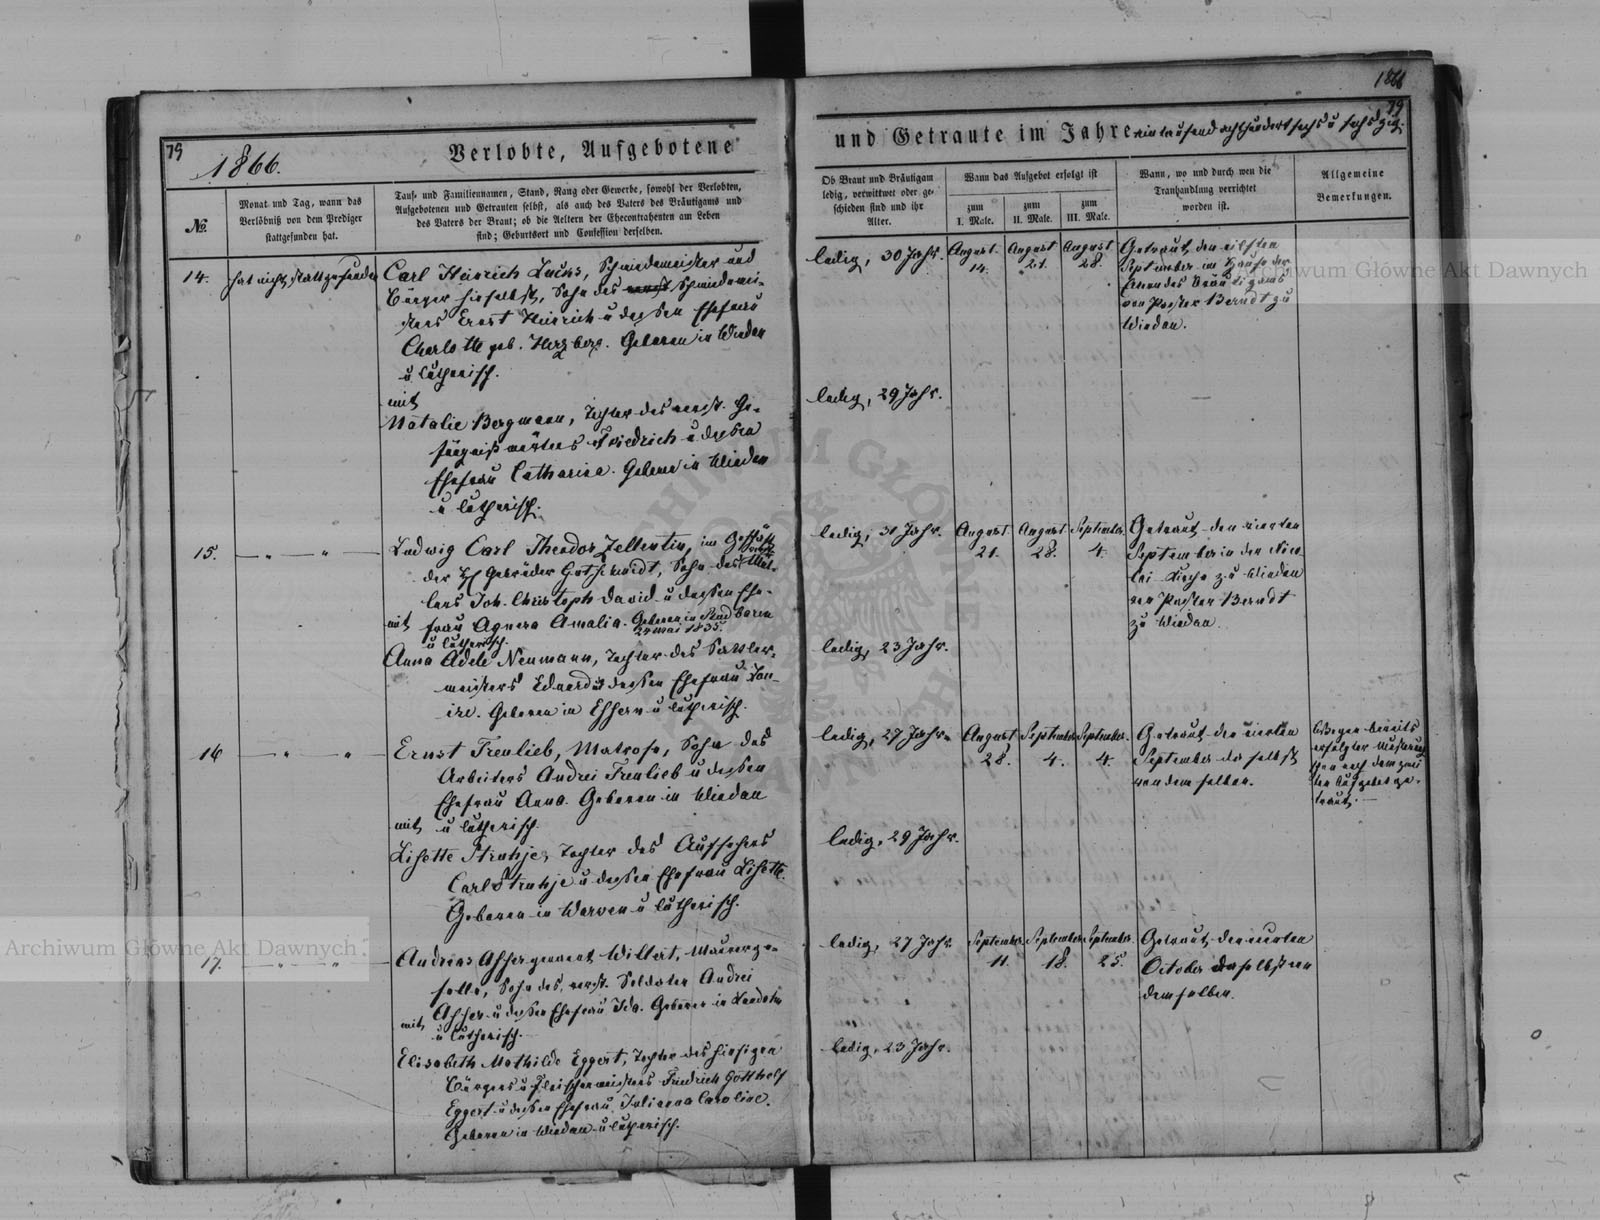 1866
79
79
1866.
Verlobte, Aufgebotene
und Getraute im Jahre eintausend achthundert sechs u sechszig.
№.
Monat und Tag, wann das
Verlöbniß von dem Prediger
stattgefunden hat.
Tauf- und Familiennamen, Stand, Rang oder Gewerbe, sowohl der Verlobten,
Aufgebotenen und Getrauten selbst, als auch des Vaters des Bräutigams und
des Vaters der Braut; ob die Aeltern der Ehecontrahenten am Leben
sind; Geburtsort und Confession derselben.
Ob Braut und Bräutigam
ledig, verwittwet oder ge-
schieden sind und ihr
Alter.
Wann das Aufgebot erfolgt ist
zum
I. Male.
zum
II. Male.
zum
III. Male.
Wann, wo und durch wen die
Trauhandlung verrichtet
worden ist.
Allgemeine
Bemerkungen.
14.
hat nicht stattgefunden
Carl Heinrich Schmiedemeister und
Bürger hieselbst, Sohn des Schmiedemei-
sters Ernst Heinrich u dessen Ehefrau
Charlotte geb. Herzberg. Geboren in Windau
u lutherisch.
mit
Natalie Bergmann, Tochter des verst. Ge-
fängnißwärters Friedrich u dessen
Ehefrau Catharina. Geboren in Windau
u lutherisch.
ledig, 30 Jahr.
ledig, 29 Jahr.
August
14.
August
21.
August
28.
Getraut den eilften
September im Hause der
Eltern des Bräutigams
von Pastor Berndt zu
Windau.
15.
— " — " —
Ludwig Carl Theodor Zellentin, im Geschäft
der Gebrüder Gotschmidt, Sohn des verst. Mül-
lers Joh. Christoph David u dessen Ehe-
mit frau Agnesa Amalia. Geboren in
24 Mai 1835.
u lutherisch.
Anna Adele Neumann, Tochter des Sattler-
meisters Eduard u dessen Ehefrau
Geboren in u lutherisch.
ledig, 31 Jahr.
ledig, 23 Jahr.
August
21.
August
28.
September
4.
Getraut den vierten
September in der Nico-
lai-Kirche zu Windau
von Pastor Berndt
zu Windau.
16
— " — " —
Ernst Freulieb, Matrose, Sohn des
Arbeiters Andrei Freulieb u dessen
Ehefrau Anna. Geboren in Windau
mit u lutherisch.
Lisette Struhje, Tochter des Aufsehers
Carl Struhje u dessen Ehefrau Lisette.
Geboren in Warwen u lutherisch.
ledig, 27 Jahr.
ledig, 29 Jahr.
August
28.
September
4.
September
4.
Getraut den vierten
September daselbst
von demselben.
Wegen bereits
erfolgter
schon nach dem zwei-
ten Aufgebot ge-
traut.
17.
— " — " —
Andreas Assar genannt Willert, Maurerge-
selle, Sohn des verst. Soldaten Andrei
Assar u dessen Ehefrau Ida. Geboren in
mit u lutherisch.
Elisabeth Mathilde Eggert, Tochter des hiesigen
Bürgers u Fleischermeisters Friedrich Gotthelf
Eggert u dessen Ehefrau Juliana Caroline.
Geboren in Windau u lutherisch.
ledig, 27 Jahr.
ledig, 23 Jahr.
September
11.
September
18.
September
25.
Getraut den vierten
October daselbst von
demselben.
Archiwum Główne Akt Dawnych
Archiwum Główne Akt Dawnych
ARCHIWUM GŁÓWNE AKT DAWNYCH